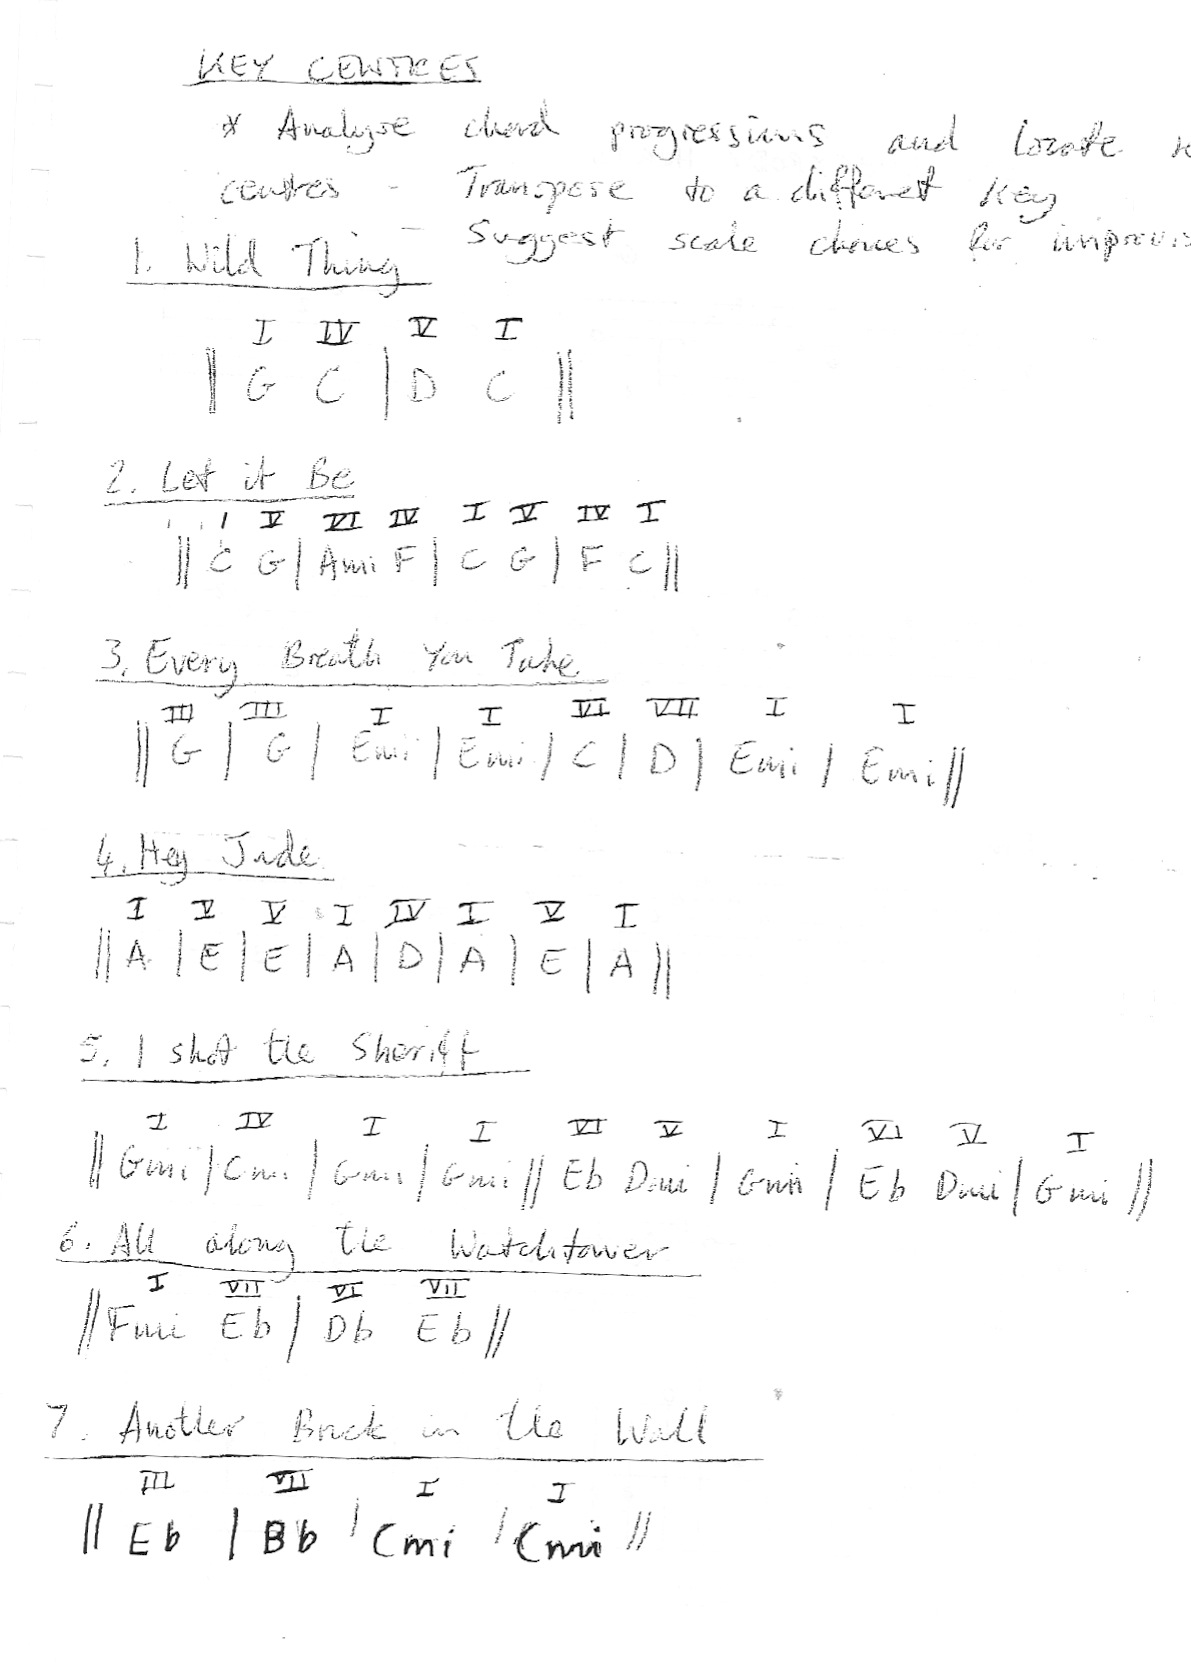 KEY CENTRES
* Analyse chord progressions and locate
centres - Transpose to a different key
- Suggest scale choices for improvis
1. Wild Thing
I IV V I
|| G C | D C ||
2. Let it Be
I V VI IV I V IV I
|| C G | Ami F | C G | F C ||
3. Every Breath You Take
III III I I VI VII I I
|| G | G | Emi | Emi | C | D | Emi | Emi ||
4. Hey Jude
I V V I IV I V I
|| A | E | E | A | D | A | E | A ||
5. I shot the Sheriff
I IV I I VI V I VI V I
|| Gmi | Cmi | Gmi | Gmi || Eb Dmi | Gmi | Eb Dmi | Gmi ||
6. All along the Watchtower
I VII VI VII
|| Fmi Eb | Db Eb ||
7. Another Brick in the Wall
III VII I I
|| Eb | Bb | Cmi | Cmi ||